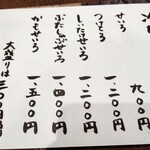 せいろ 九〇〇円
つけとろ 一、二〇〇円
しいたけせいろ 一、二〇〇円
ぶたしゃぶせいろ 一、四〇〇円
かもせいろ 一、五〇〇円
大盛りは三〇〇円